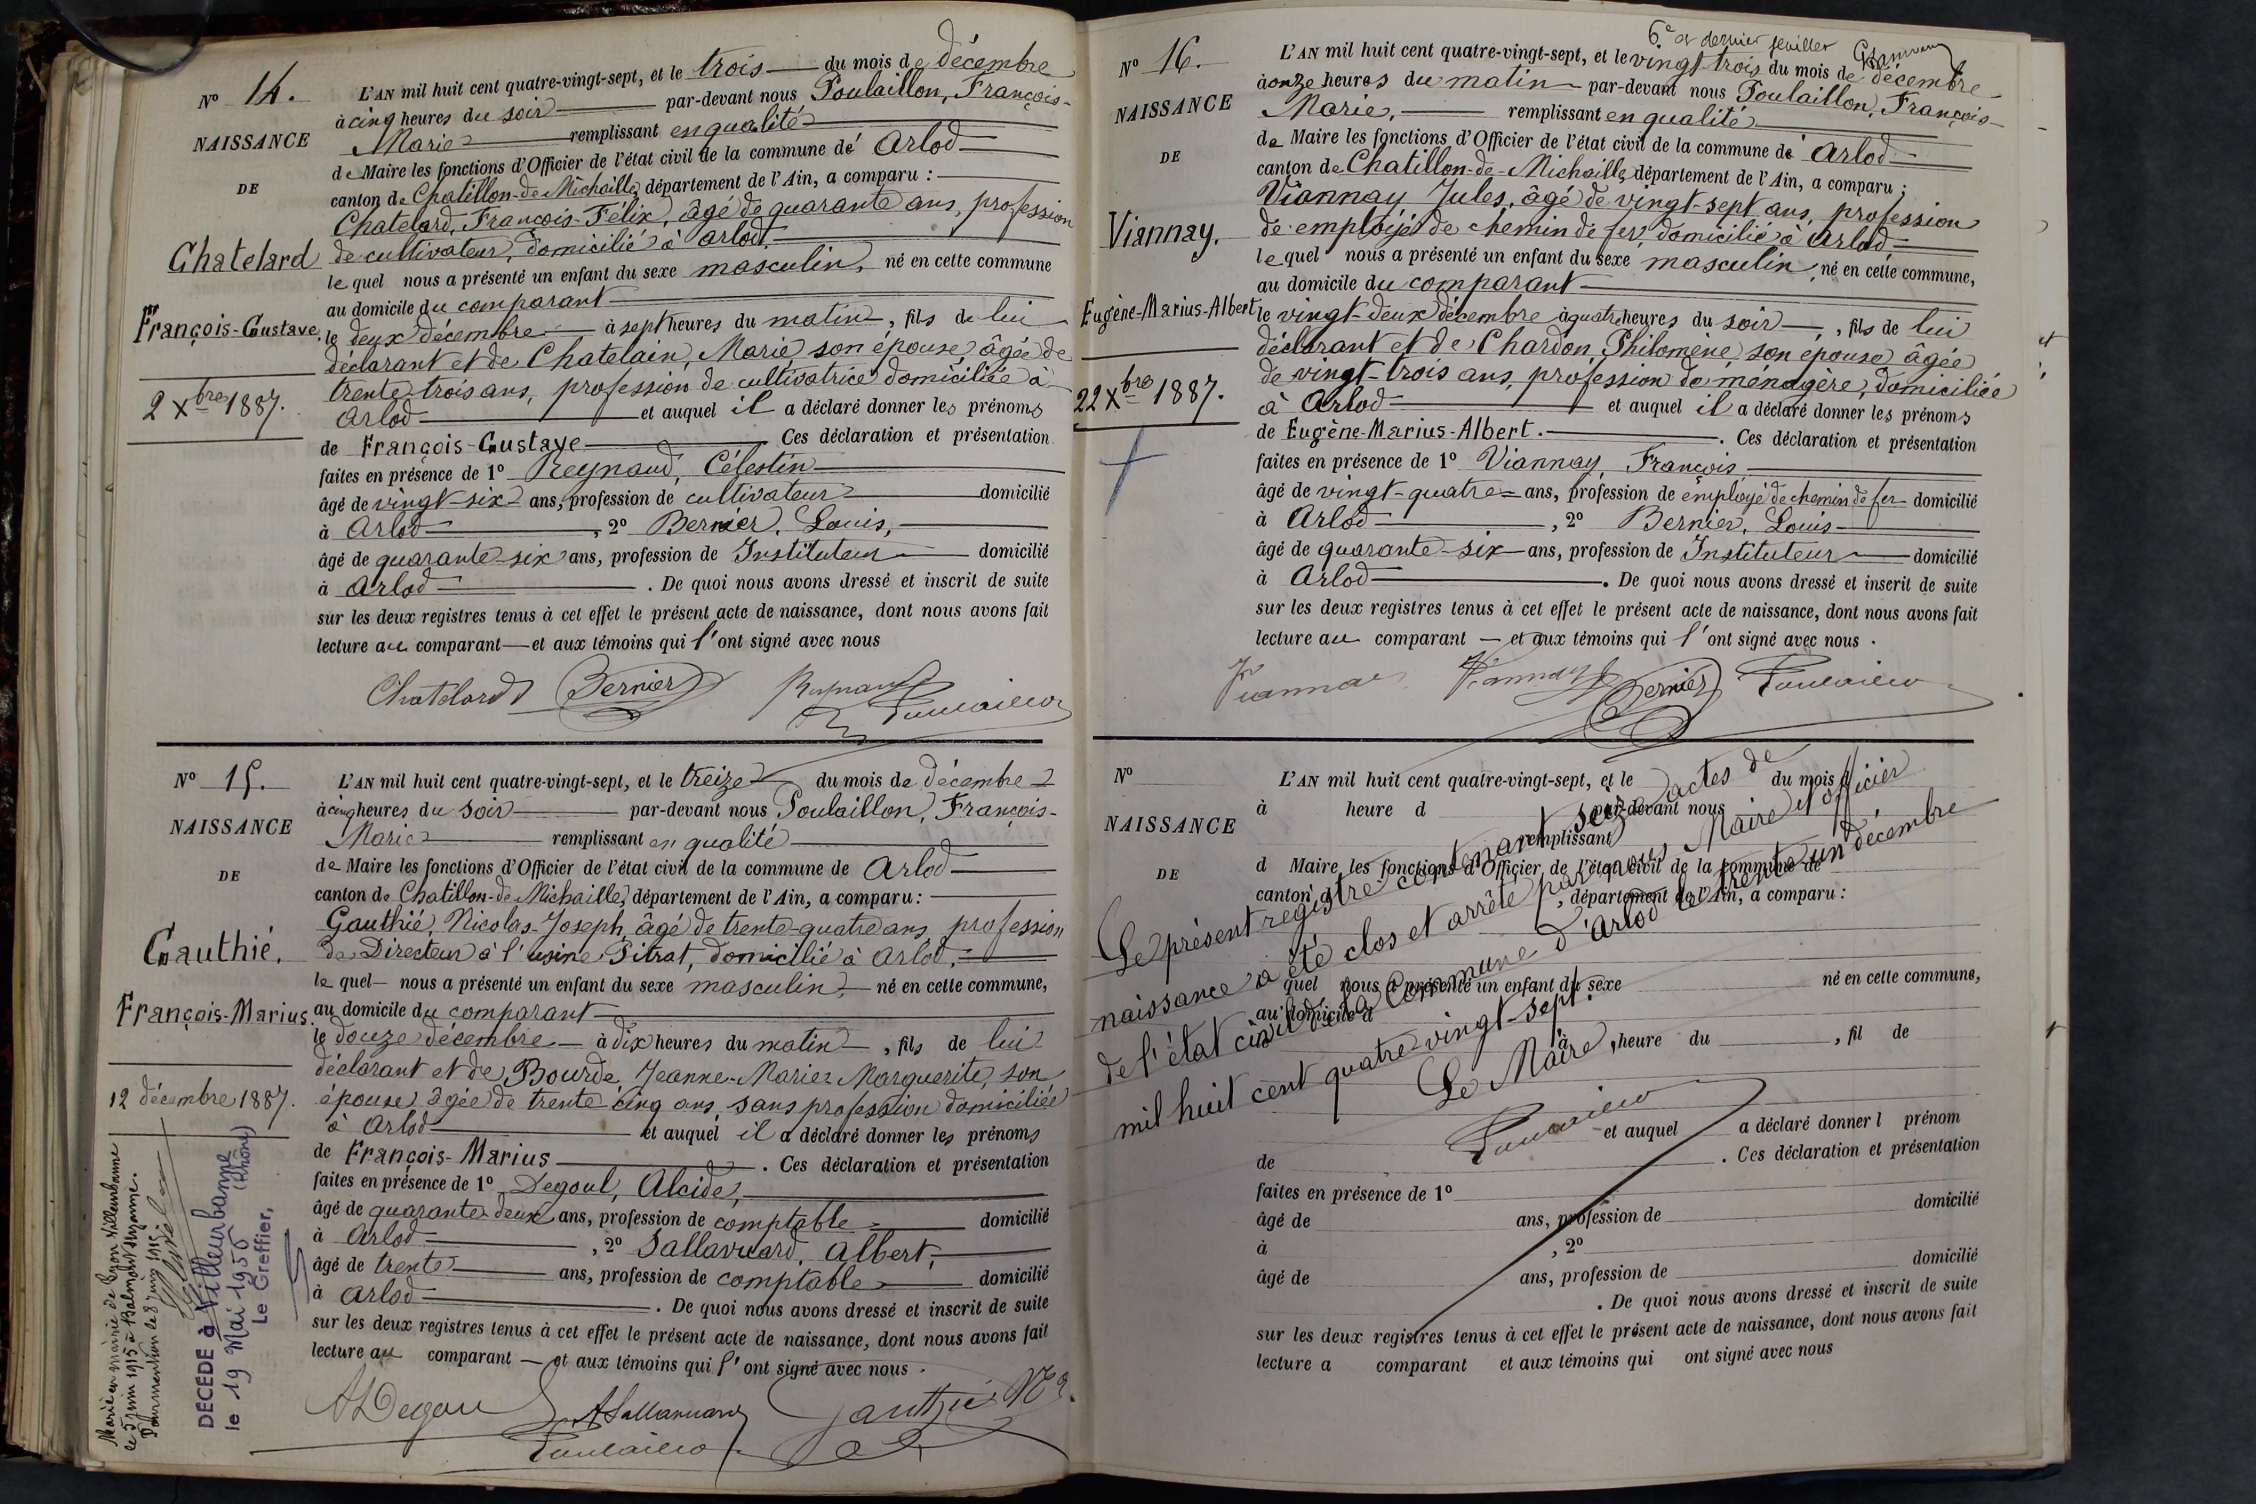 N° 14.
NAISSANCE
DE
Chatelard
François-Gustave.
2 Xbre 1887.
L'AN mil huit cent quatre-vingt-sept, et le trois du mois de décembre
à cinq heures du soir par-devant nous Poulaillon, François-
Marie remplissant en qualité
de Maire les fonctions d'Officier de l'état civil de la commune de Arlod
canton de Chatillon-de-Michaille, département de l'Ain, a comparu :
Chatelard, François-Félix, âgé de quarante ans, profession
de cultivateur, domicilié à Arlod,
lequel nous a présenté un enfant du sexe masculin, né en cette commune
au domicile du comparant
le deux décembre à sept heures du matin, fils de lui
déclarant et de Chatelain, Marie, son épouse, âgée de
trente-trois ans, profession de cultivatrice domiciliée à
Arlod et auquel il a déclaré donner les prénoms
de François-Gustave Ces déclaration et présentation
faites en présence de 1° Reynaud, Célestin
âgé de vingt-six ans, profession de cultivateur domicilié
à Arlod, 2° Bernier, Louis,
âgé de quarante-six ans, profession de Instituteur domicilié
à Arlod. De quoi nous avons dressé et inscrit de suite
sur les deux registres tenus à cet effet le présent acte de naissance, dont nous avons fait
lecture au comparant et aux témoins qui l'ont signé avec nous
Chatelard Bernier Reynaud
Poulaillon
N° 15.
NAISSANCE
DE
Gauthié,
François-Marius.
12 décembre 1887.
Marié en mairie de Bron Villeurbanne
le 5 juin 1915 à
le 8 juin 1915.
DÉCÉDÉ à Villeurbanne
(Rhône)
le 19 Mai 1956
Le Greffier,
L'AN mil huit cent quatre-vingt-sept, et le treize du mois de décembre
à cinq heures du soir par-devant nous Poulaillon, François-
Marie remplissant en qualité
de Maire les fonctions d'Officier de l'état civil de la commune de Arlod
canton de Chatillon-de-Michaille, département de l'Ain, a comparu :
Gauthié, Nicolas-Joseph, âgé de trente-quatre ans, profession
de Directeur à l'usine Pitrat, domicilié à Arlod,
lequel nous a présenté un enfant du sexe masculin, né en cette commune,
au domicile du comparant
le douze décembre à dix heures du matin, fils de lui
déclarant et de Bourde, Jeanne-Marie Marguerite, son
épouse, âgée de trente-cinq ans, sans profession domiciliée
à Arlod et auquel il a déclaré donner les prénoms
de François-Marius. Ces déclaration et présentation
faites en présence de 1° Degoul, Alcide,
âgé de quarante-deux ans, profession de comptable domicilié
à Arlod, 2° Sallavuard, Albert,
âgé de trente ans, profession de comptable domicilié
à Arlod. De quoi nous avons dressé et inscrit de suite
sur les deux registres tenus à cet effet le présent acte de naissance, dont nous avons fait
lecture au comparant et aux témoins qui l'ont signé avec nous.
ADegoul ASallavuard Gauthié
Poulaillon
6e et dernier feuillet
N° 16.
NAISSANCE
DE
Viannay.
Eugène-Marius-Albert
22 Xbre 1887.
L'AN mil huit cent quatre-vingt-sept, et le vingt-trois du mois de décembre
à onze heures du matin par-devant nous Poulaillon, François-
Marie, remplissant en qualité
de Maire les fonctions d'Officier de l'état civil de la commune de Arlod
canton de Chatillon-de-Michaille, département de l'Ain, a comparu :
Viannay Jules, âgé de vingt-sept ans, profession
de employé de chemin de fer, domicilié à Arlod
lequel nous a présenté un enfant du sexe masculin, né en cette commune,
au domicile du comparant
le vingt-deux décembre à quatre heures du soir, fils de lui
déclarant et de Chardon, Philomène, son épouse, âgée
de vingt-trois ans, profession de ménagère, domiciliée
à Arlod et auquel il a déclaré donner les prénoms
de Eugène-Marius-Albert. Ces déclaration et présentation
faites en présence de 1° Viannay, François
âgé de vingt-quatre ans, profession de employé de chemin de fer domicilié
à Arlod, 2° Bernier, Louis
âgé de quarante-six ans, profession de Instituteur domicilié
à Arlod. De quoi nous avons dressé et inscrit de suite
sur les deux registres tenus à cet effet le présent acte de naissance, dont nous avons fait
lecture au comparant et aux témoins qui l'ont signé avec nous.
Viannay Viannay Bernier Poulaillon
N°
NAISSANCE
DE
L'AN mil huit cent quatre-vingt-sept, et le du mois d
à heure d par-devant nous
remplissant
d Maire les fonctions d'Officier de l'état civil de la commune de
canton d , département de l'Ain, a comparu :
quel nous a présenté un enfant du sexe né en cette commune,
au domicile d
à heure du , fil de
et auquel a déclaré donner l prénom
de . Ces déclaration et présentation
faites en présence de 1°
âgé de ans, profession de domicilié
à , 2°
âgé de ans, profession de domicilié
. De quoi nous avons dressé et inscrit de suite
sur les deux registres tenus à cet effet le présent acte de naissance, dont nous avons fait
lecture a comparant et aux témoins qui ont signé avec nous
Le présent registre contenant seize actes de
naissance a été clos et arrêté par nous Maire et officier
de l'état civil de la Commune d'Arlod le trente-un décembre
mil huit cent quatre vingt-sept.
Le Maire,
Poulaillon